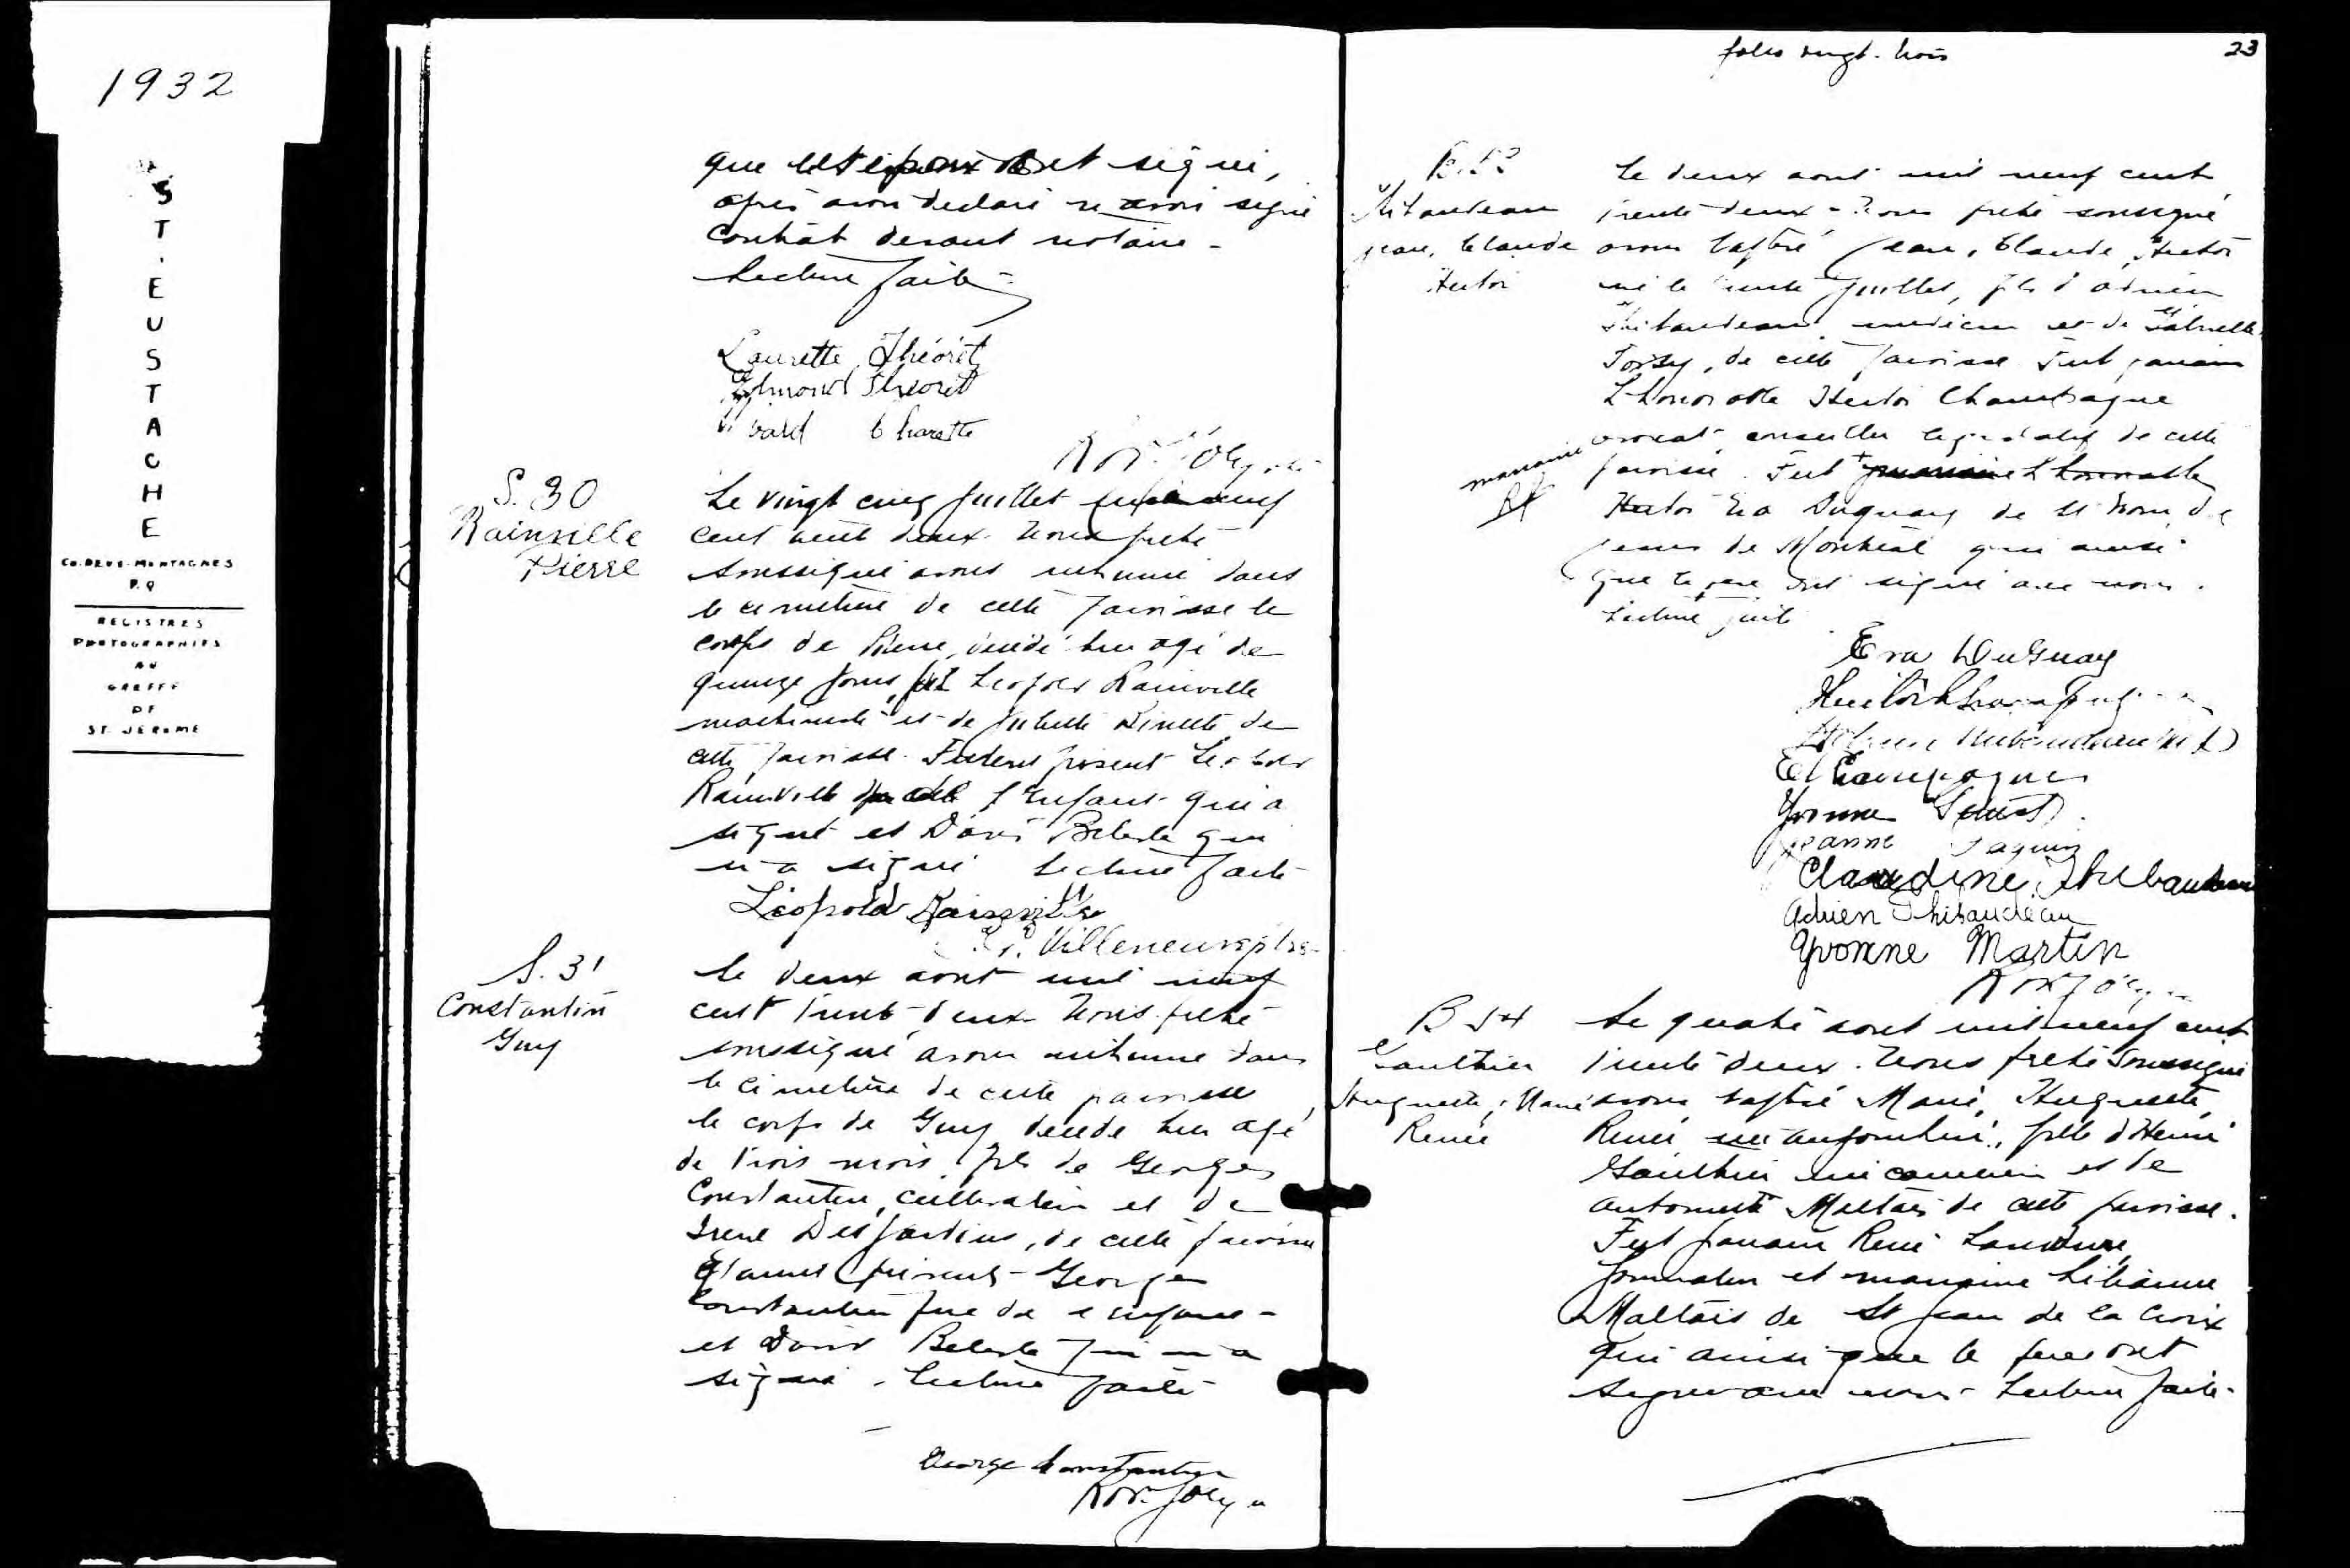 1932
ST. EUSTACHE
CO. DEUX-MONTAGNES
P.Q
REGISTRES
PHOTOGRAPHIES
AU
GREFFE
DE
ST. JEROME
que les époux ont signé,
après avoir déclaré avoir signé
contrat devant notaire -
Lecture faite -
Laurette Théorêt
Edmond Théoret
Charette
S. 30
Rainville
Pierre
Le vingt cinq juillet mil neuf
cent trente deux. Nous prêtre
soussigné avons inhumé dans
le cimetière de cette paroisse le
corps de Pierre, décédé hier agé de
quinze jours, fils Leopold Rainville
et de Juliette de
cette paroisse. Furent présent Leopold
Rainville l'enfant qui a
signé et David Belisle qui
n'a signé Lecture faite
Léopold Rainville
Villeneuve ptre
S. 31
Constantin
Guy
Le deux aout mil neuf
cent trente-deux Nous prêtre
soussigné avons inhumé dans
le cimetière de cette paroisse
le corps de Guy décédé hier agé
de trois mois, fils de Georges
Constantin, cultivateur et de
Irene Desjardins, de cette paroisse
Etaient présents - Georges
Constantin père de l'enfant -
et David Belisle qui n'a
signé. Lecture faite
George Constantin
folio vingt-trois
23
B. 53
Thibaudeau
Jean, Claude
Hector
Le deux aout mil neuf cent
trente deux - Nous prêtre soussigné
avons baptisé Jean, Claude, Hector
né le trente juillet, fils d'Adrien
Thibaudeau, médecin et de Gabrielle
de cette paroisse. Fut parrain
L'honorable Hector Champagne
avocat, conseiller législatif de cette
paroisse. Fut + parrain L'honorable
marraine
Hector Eva Duguay de St Nom de
Jesus de Montréal qui ainsi
que le père ont signé avec nous.
Lecture faite
Eva Duguay
Hector Champagne
Thibaudeau M D
Champagne
Yvonne
Jeanne Paquin
Claudine Thibaudeau
Adrien Thibaudeau
Yvonne Martin
B 54
Gauthier
Huguette, Marie
Renée
Le quatre aout mil neuf cent
trente deux. Nous prêtre soussigné
avons baptisé Marie, Huguette,
Renée née aujourd'hui, fille d'Henri
Gauthier mécanicien et de
Antoinette Maltais de cette paroisse.
Fut parrain René
journalier et marraine Lilianne
Maltais de St Jean de la Croix
qui ainsi que le père ont
signé avec nous - Lecture faite -